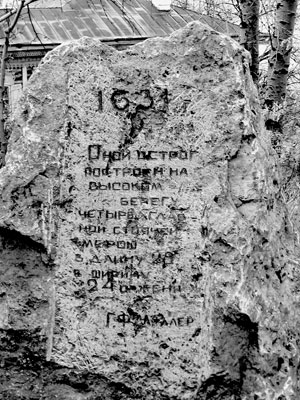 1631
Оной острог
построен на
высоком
берегу
четыреугла
ной стоячей
мерою
в длину 20
в ширину
24 сажени
Г.Ф. Миллер